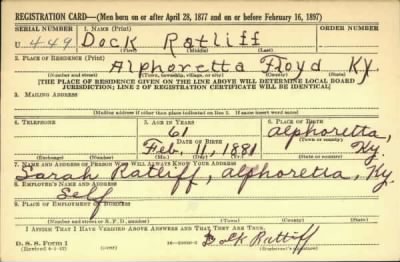 REGISTRATION CARD—(Men born on or after April 28, 1877 and on or before February 16, 1897)
SERIAL NUMBER 1. NAME (Print)
U 449 Dock Ratliff
(First) (Middle) (Last)
2. PLACE OF RESIDENCE (Print)
Alphoretta Floyd Ky
(Number and street) (Town, township, village, or city) (County) (State)
[THE PLACE OF RESIDENCE GIVEN ON THE LINE ABOVE WILL DETERMINE LOCAL BOARD
JURISDICTION; LINE 2 OF REGISTRATION CERTIFICATE WILL BE IDENTICAL]
3. MAILING ADDRESS
[Mailing address if other than place indicated on line 2. If same insert word same]
4. TELEPHONE 5. AGE IN YEARS 6. PLACE OF BIRTH
61 Alphoretta,
DATE OF BIRTH (Town or county)
Feb. 11, 1881 Ky.
(Exchange) (Number) (Mo.) (Day) (Yr.) (State or country)
7. NAME AND ADDRESS OF PERSON WHO WILL ALWAYS KNOW YOUR ADDRESS
Sarah Ratliff, Alphoretta, Ky.
8. EMPLOYER'S NAME AND ADDRESS
Self
9. PLACE OF EMPLOYMENT OR BUSINESS
(Number and street or R. F. D. number) (Town) (County) (State)
I AFFIRM THAT I HAVE VERIFIED ABOVE ANSWERS AND THAT THEY ARE TRUE.
D. S. S. Form 1
(Revised 4-1-42) (over) Dock Ratliff
(Registrant's signature)